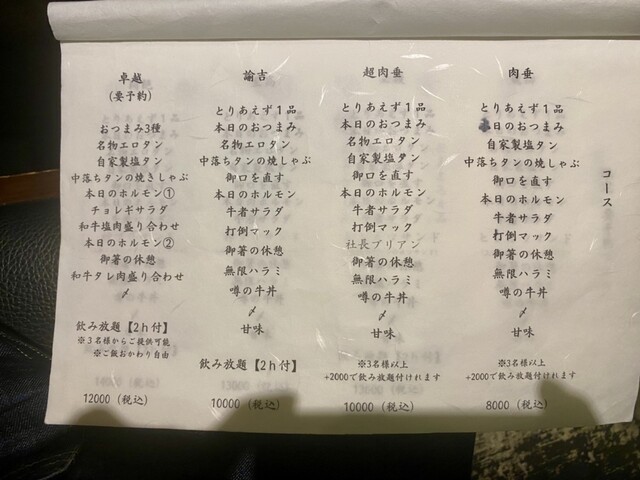 コース
肉垂
とりあえず１品
日のおつまみ
自家製塩タン
中落ちタンの焼しゃぶ
御口を直す
本日のホルモン
牛者サラダ
打倒マック
御箸の休憩
無限ハラミ
噂の牛丼
〆
甘味
※3名様以上
+2000で飲み放題付けれます
8000（税込）
超肉垂
とりあえず１品
本日のおつまみ
名物エロタン
自家製塩タン
御口を直す
本日のホルモン
牛者サラダ
打倒マック
社長ブリアン
御箸の休憩
無限ハラミ
噂の牛丼
〆
甘味
※3名様以上
+2000で飲み放題付けれます
10000（税込）
諭吉
とりあえず１品
本日のおつまみ
名物エロタン
中落ちタンの焼しゃぶ
御口を直す
本日のホルモン
牛者サラダ
打倒マック
御箸の休憩
無限ハラミ
噂の牛丼
〆
甘味
飲み放題【2ｈ付】
10000（税込）
卓越
(要予約)
おつまみ3種
名物エロタン
自家製塩タン
中落ちタンの焼きしゃぶ
本日のホルモン①
チョレギサラダ
和牛塩肉盛り合わせ
本日のホルモン②
御箸の休憩
和牛タレ肉盛り合わせ
〆
飲み放題【2ｈ付】
※３名様からご提供可能
※ご飯おかわり自由
12000（税込）